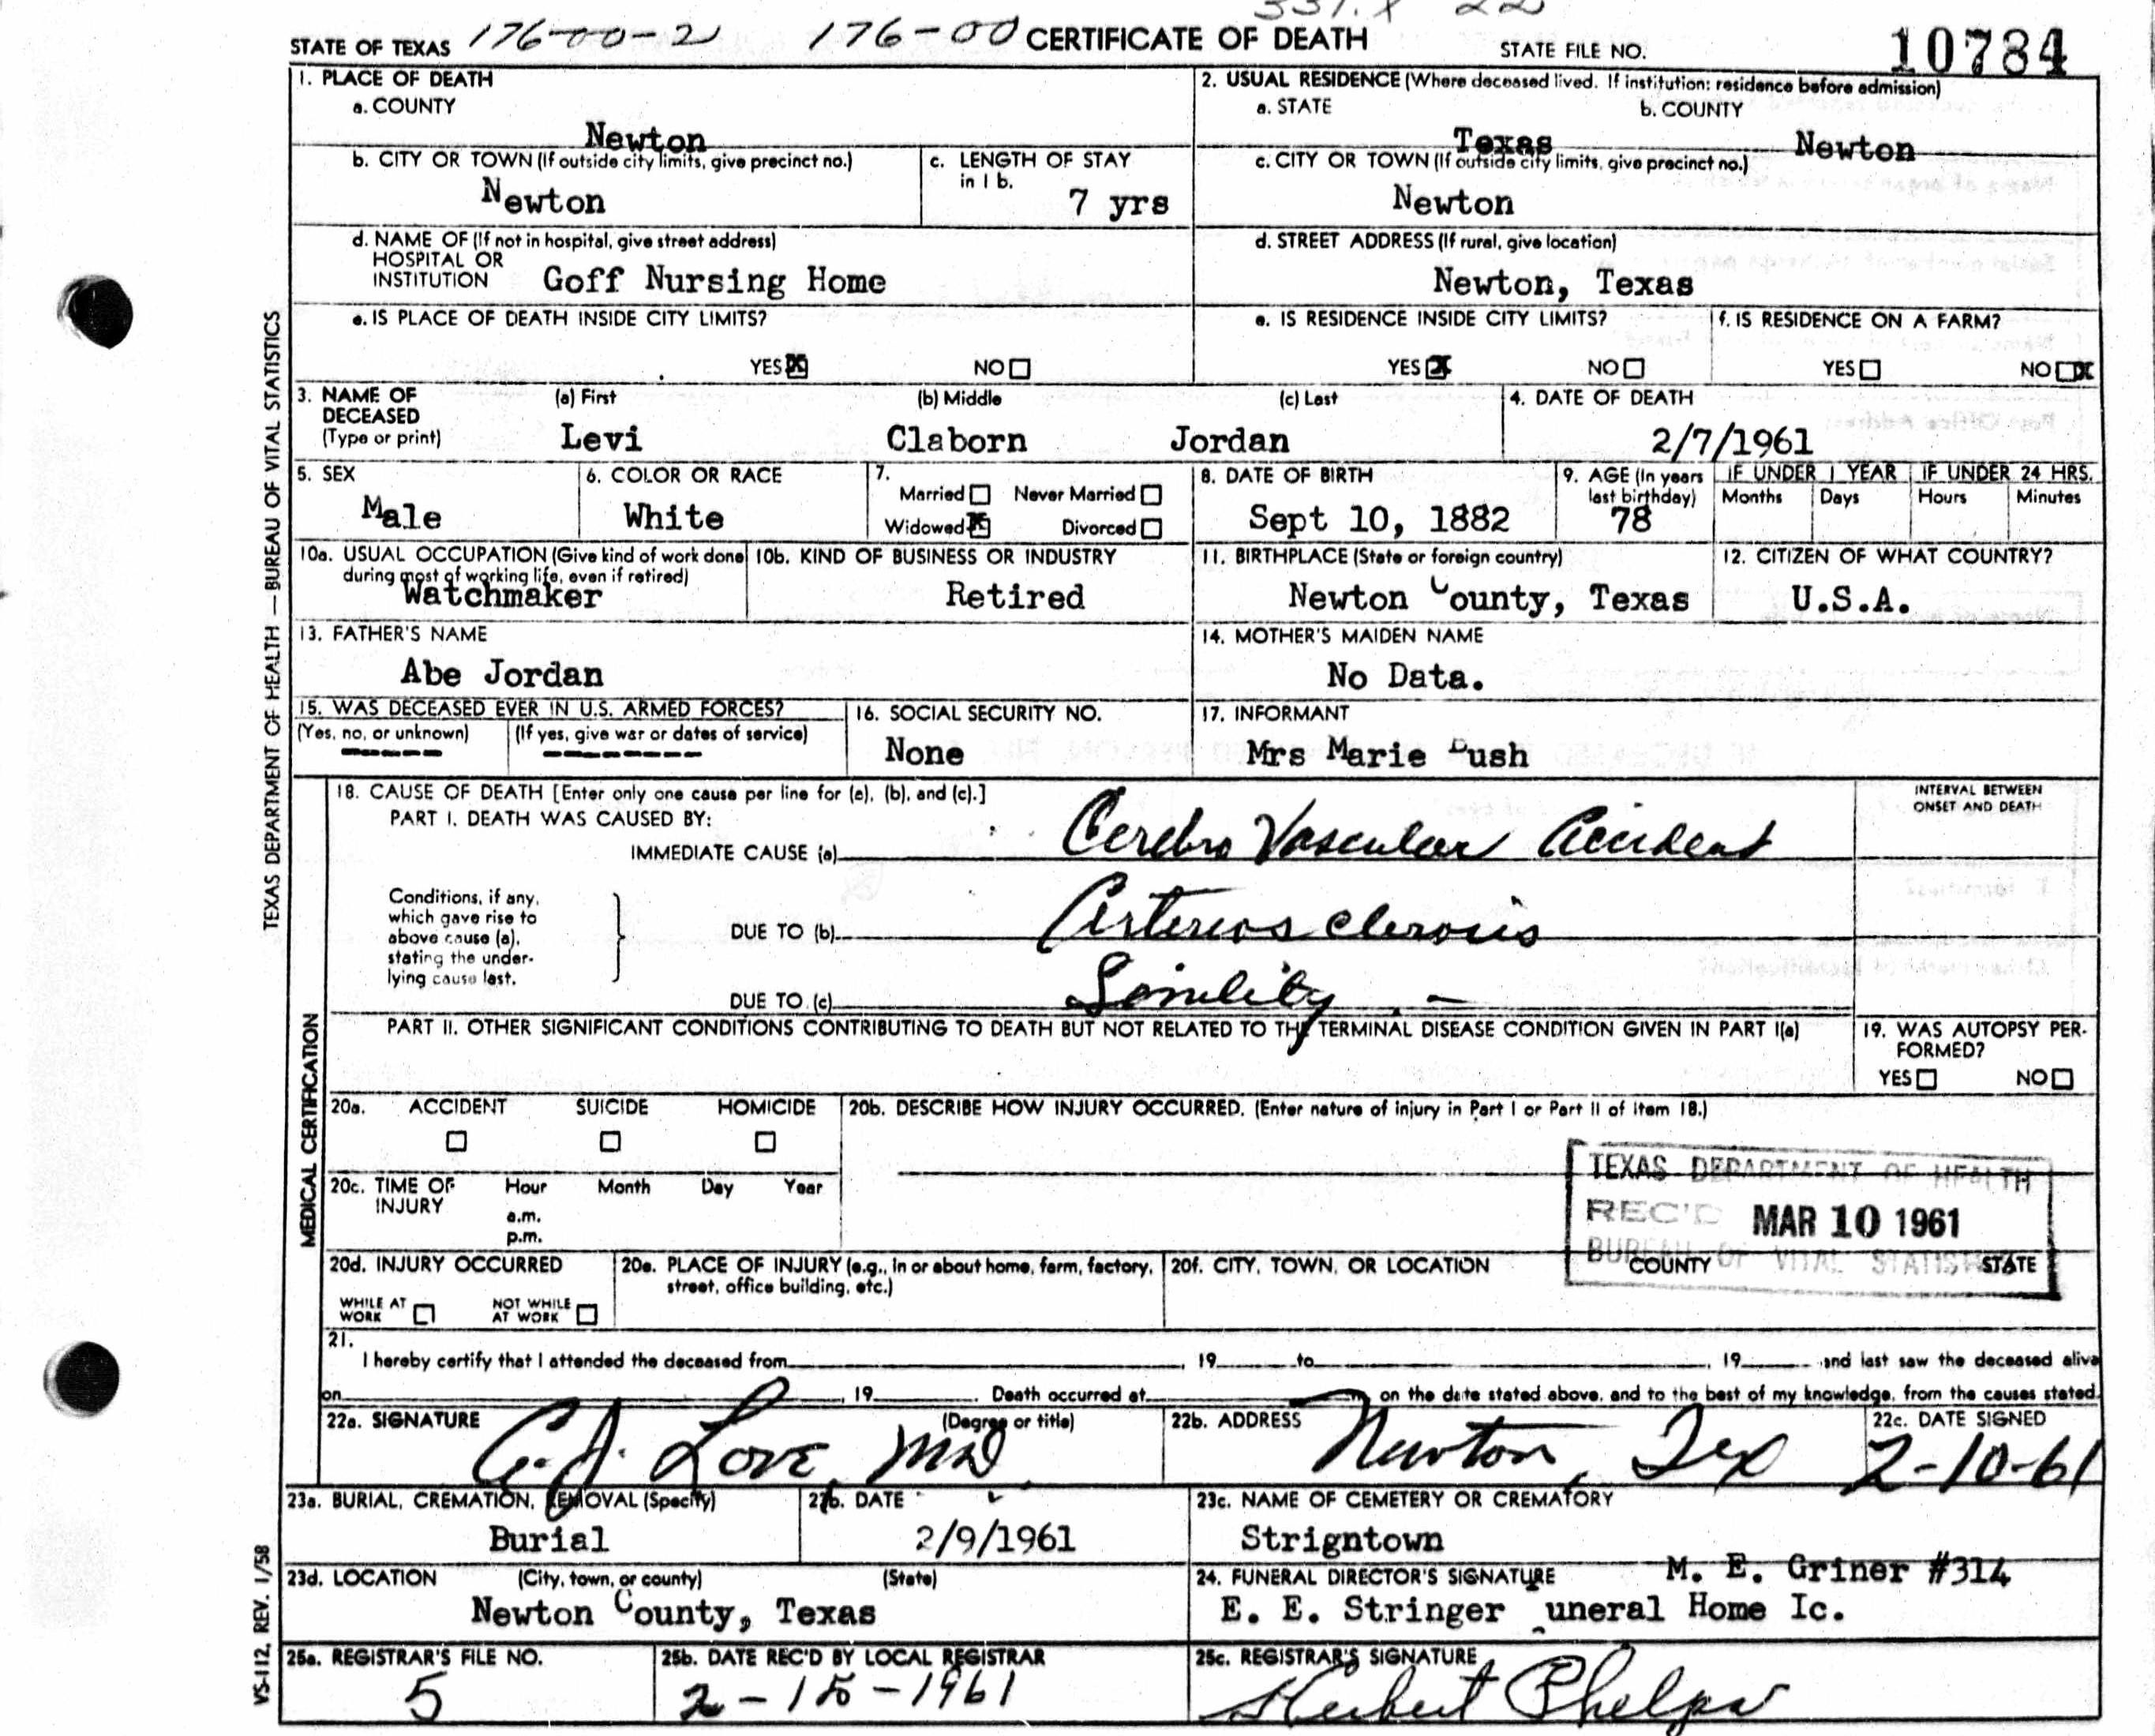 331.X 22
STATE OF TEXAS 176-00-2 176-00 CERTIFICATE OF DEATH STATE FILE NO. 10784
1. PLACE OF DEATH
a. COUNTY
Newton
2. USUAL RESIDENCE (Where deceased lived. If institution: residence before admission)
a. STATE b. COUNTY
Texas Newton
b. CITY OR TOWN (If outside city limits, give precinct no.)
Newton
c. LENGTH OF STAY
in 1 b.
7 yrs
c. CITY OR TOWN (If outside city limits, give precinct no.)
Newton
d. NAME OF (If not in hospital, give street address)
HOSPITAL OR
INSTITUTION Goff Nursing Home
d. STREET ADDRESS (If rural, give location)
Newton, Texas
e. IS PLACE OF DEATH INSIDE CITY LIMITS?
YES X NO
e. IS RESIDENCE INSIDE CITY LIMITS?
YES X NO
f. IS RESIDENCE ON A FARM?
YES NO X
3. NAME OF
DECEASED
(Type or print)
(a) First (b) Middle (c) Last
Levi Claborn Jordan
4. DATE OF DEATH
2/7/1961
5. SEX
Male
6. COLOR OR RACE
White
7.
Married Never Married
Widowed X Divorced
8. DATE OF BIRTH
Sept 10, 1882
9. AGE (In years
last birthday)
78
IF UNDER 1 YEAR
Months Days
IF UNDER 24 HRS.
Hours Minutes
10a. USUAL OCCUPATION (Give kind of work done
during most of working life, even if retired)
Watchmaker
10b. KIND OF BUSINESS OR INDUSTRY
Retired
11. BIRTHPLACE (State or foreign country)
Newton County, Texas
12. CITIZEN OF WHAT COUNTRY?
U.S.A.
13. FATHER'S NAME
Abe Jordan
14. MOTHER'S MAIDEN NAME
No Data.
15. WAS DECEASED EVER IN U.S. ARMED FORCES?
(Yes, no, or unknown) (If yes, give war or dates of service)
----- --------
16. SOCIAL SECURITY NO.
None
17. INFORMANT
Mrs Marie
18. CAUSE OF DEATH [Enter only one cause per line for (a), (b), and (c).]
PART I. DEATH WAS CAUSED BY:
IMMEDIATE CAUSE (a) Cerebro Vascular Accident
INTERVAL BETWEEN
ONSET AND DEATH
Conditions, if any,
which gave rise to
above cause (a),
stating the under-
lying cause last.
DUE TO (b) Arteriosclerosis
DUE TO (c) Senility -
PART II. OTHER SIGNIFICANT CONDITIONS CONTRIBUTING TO DEATH BUT NOT RELATED TO THE TERMINAL DISEASE CONDITION GIVEN IN PART I(a)
19. WAS AUTOPSY PER-
FORMED?
YES NO
20a. ACCIDENT SUICIDE HOMICIDE
20b. DESCRIBE HOW INJURY OCCURRED. (Enter nature of injury in Part I or Part II of item 18.)
20c. TIME OF
INJURY
Hour Month Day Year
a.m.
p.m.
TEXAS DEPARTMENT OF HEALTH
REC'D MAR 10 1961
BUREAU OF VITAL STATISTICS
20d. INJURY OCCURRED
WHILE AT
WORK
NOT WHILE
AT WORK
20e. PLACE OF INJURY (e.g., in or about home, farm, factory,
street, office building, etc.)
20f. CITY, TOWN, OR LOCATION COUNTY STATE
21.
I hereby certify that I attended the deceased from , 19 to , 19 and last saw the deceased alive
on , 19 . Death occurred at m on the date stated above, and to the best of my knowledge, from the causes stated.
22a. SIGNATURE (Degree or title)
Love, MD
22b. ADDRESS
Newton, Tex
22c. DATE SIGNED
2-10-61
23a. BURIAL, CREMATION, REMOVAL (Specify)
Burial
23b. DATE
2/9/1961
23c. NAME OF CEMETERY OR CREMATORY
Strigntown
23d. LOCATION (City, town, or county) (State)
Newton County, Texas
24. FUNERAL DIRECTOR'S SIGNATURE M. E. Griner #314
E. E. Stringer Funeral Home Ic.
25a. REGISTRAR'S FILE NO.
5
25b. DATE REC'D BY LOCAL REGISTRAR
2-15-1961
25c. REGISTRAR'S SIGNATURE
Herbert Phelps
TEXAS DEPARTMENT OF HEALTH — BUREAU OF VITAL STATISTICS
MEDICAL CERTIFICATION
VS-112, REV. 1/58